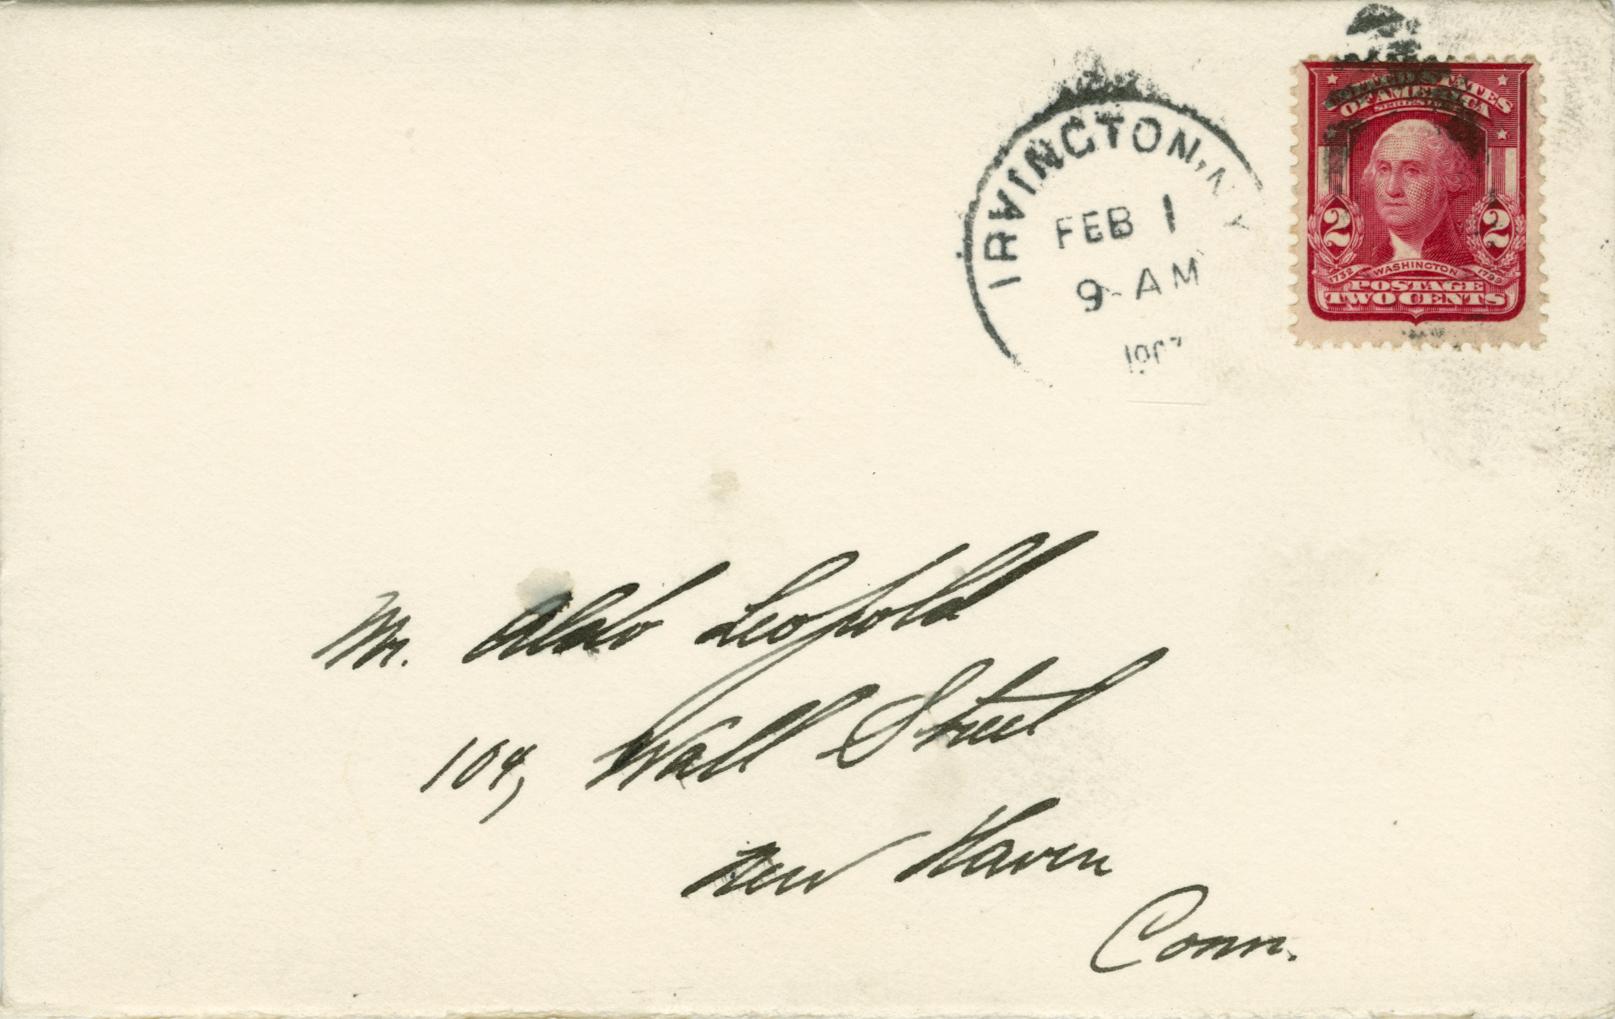 IRVINGTON, N Y
FEB 1
9- AM
UNITED STATES
OF AMERICA
2 2
1732 WASHINGTON 1799
POSTAGE
TWO CENTS
Mr. Aldo Leopold
104, Wall Street
New Haven
Conn.